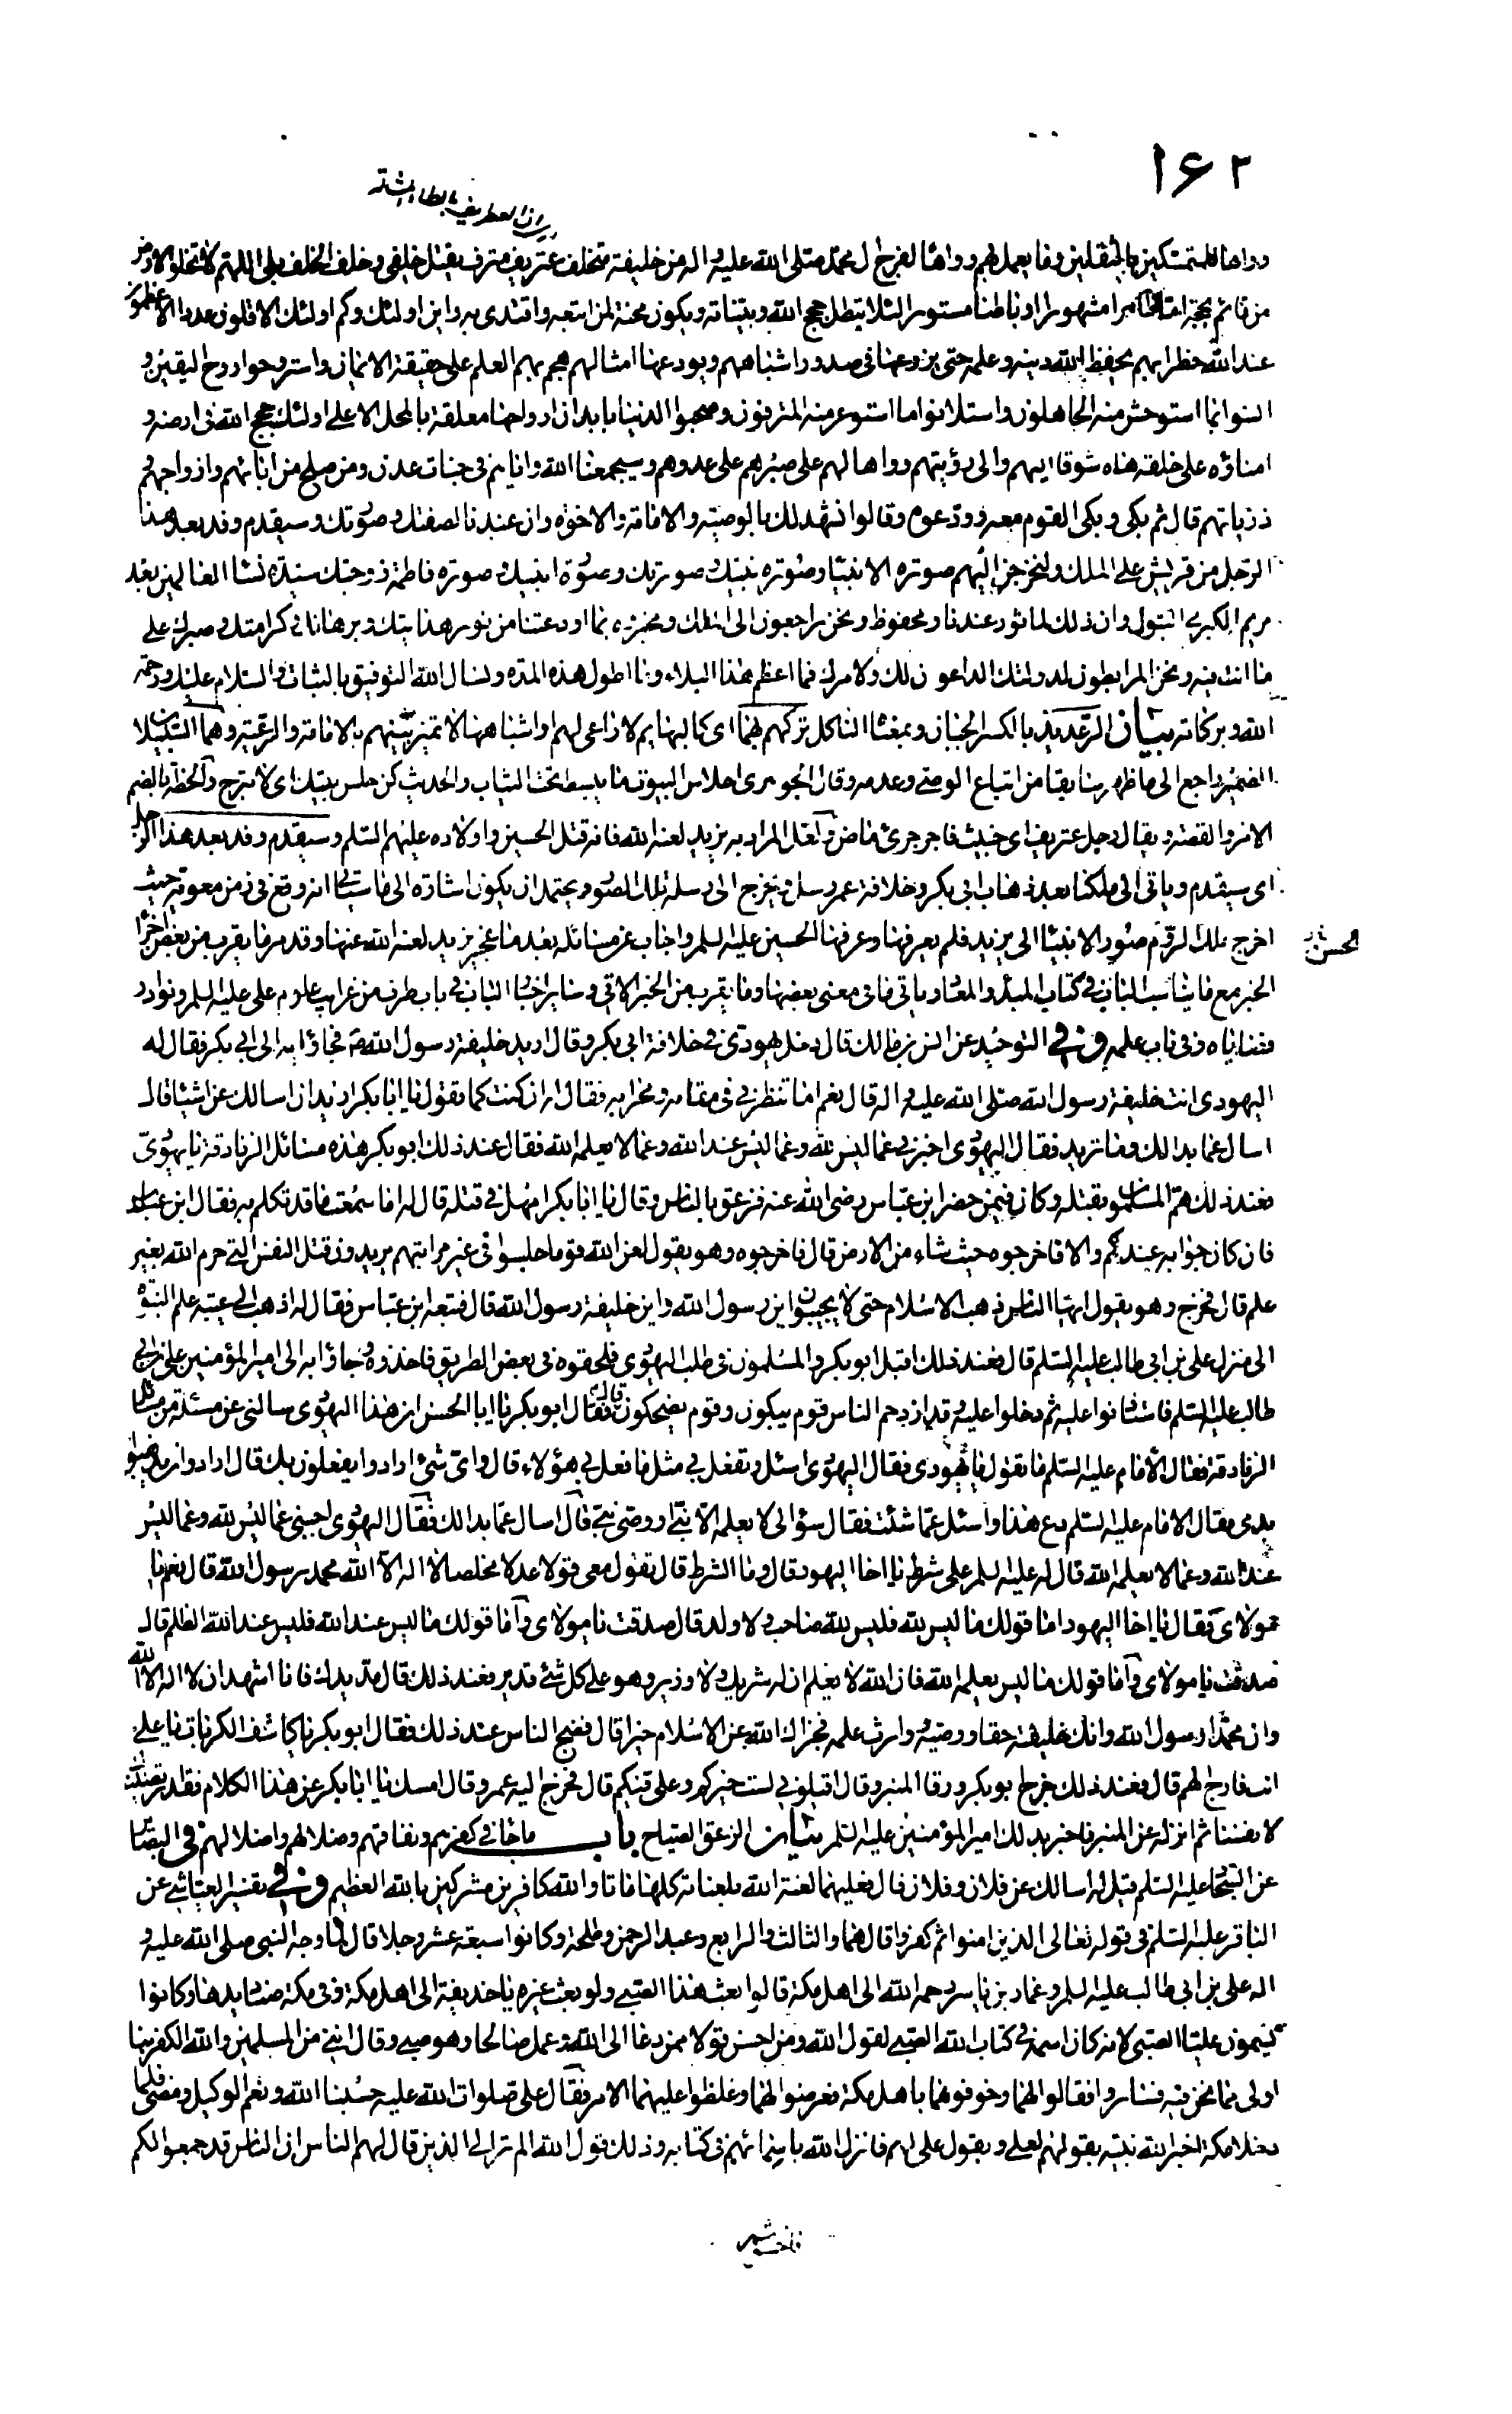 ١٦٢
وواها للمتمسكين بالثقلين وما يعمل بهم وواها لفرج ال محمد صلى الله عليه واله من خليفة متخلف عتريف مترف يقتل خلفي وخلف الخلف بلى اللهم لا تخلو الارض
من قائم بحجة اما ظاهرا مشهورا او باطنا مستورا لئلا يبطل حجج الله وبيناته ويكون محنة لمن اتبعه واقتدى به واين اولئك وكم اولئك الاقلون عددا الاعظمون
عند الله خطرا بهم يحفظ الله دينه وعلمه حتى يزرعها في صدور اشباههم ويودعها امثالهم هجم بهم العلم على حقيقة الايمان واستروحوا روح اليقين و
انسوا بما استوحش منه الجاهلون واستلانوا ما استوعر منه المترفون وصحبوا الدنيا بابدان ارواحها معلقة بالمحل الاعلى اولئك حجج الله في ارضه و
امناؤه على خلقه هاه شوقا اليهم والى رؤيتهم وواها لهم على صبرهم على عدوهم وسيجمعنا الله واياهم في جنات عدن ومن صلح من ابائهم وازواجهم و
ذرياتهم قال ثم بكى وبكى القوم معه وودعوه وقالوا نشهد لك بالوصية والامامة والاخوة وان عندنا لصفتك وصورتك وسيقدم وفد بعد هذا
الرجل من قريش على الملك ولنخرجن اليهم صورة الانبيا وصورة نبيك وصورتك وصورة ابنيك وصورة فاطمة زوجتك سيدة نسا العالمين بعد
مريم الكبرى البتول وان ذلك لماثور عندنا ومحفوظ ونحن راجعون الى الملك ومخبروه بما اودعتنا من نور هدايتك وبرهانك وكرامتك وصبرك على
ما انت فيه ونحن المرابطون لدولتك الداعون لك ولامرك فما اعظم هذا البلاء وما اطول هذه المدة ونسال الله التوفيق بالثبات والسلام عليك ورحمة
الله وبركاته بيان الرعديد بالكسر الجبان
الضمير راجع الى ما ظهر سابقا من اتباع الوصي وعدمه وقال الجوهري احلاس البيوت ما يبسط تحت الثياب والحديث كن حلس بيتك اى لا تبرح والخطة بالضم
الامر والقصة ويقال رجل عتريف اى خبيث فاجر جرئ ماض ولعل المراد به يزيد لعنه الله فانه قتل الحسين واولاده عليهم السلم وسيقدم وفد بعد هذا الرجل
اى سيقدم وياتي الى ملكنا بعد ذهاب ابي بكر وخلافة عمر رسل نخرج الى رسله تلك الصور ويحتمل ان يكون اشارة الى ما سياتي انه وقع في زمن معوية حيث
اخرج ملك الروم صور الانبيا الى يزيد فلم يعرفها وعرفها الحسين عليه السلم واجاب عن مسائله بعد ما عجز يزيد لعنه الله عنها وقد مر ما يقرب من بعض اجزا
الحسن
الخبر مع ما يناسب الباب في كتاب المبدء والمعاد وياتي ما في معنى بعضها وما يقرب من الخبر الاتي وساير اخبار الباب في باب طرف من غرايب علوم علي عليه السلم ونوادر
قضاياه وفي باب علمه وفي التوحيد عن انس بن مالك قال دخل يهودي في خلافة ابي بكر وقال اريد خليفة رسول الله فجاؤا به الى ابي بكر فقال له
اليهودي انت خليفة رسول الله صلى الله عليه واله قال نعم اما تنظرني في مقامه ومحرابه فقال له ان كنت كما تقول يا ابا بكر اريد ان اسالك عن اشيا قال
اسال عما بدا لك وما تريد فقال اليهودي اخبرني عما ليس لله وعما ليس عند الله وعما لا يعلمه الله فقال عند ذلك ابو بكر هذه مسائل الزنادقة يا يهودي
فعند ذلك هم المسلمون بقتله وكان فيمن حضر ابن عباس رضي الله عنه فزعق بالناس وقال يا ابا بكر امهل في قتله قال له اما سمعت ما قد تكلم به فقال ابن عباس
فان كان جوابه عندكم والا فاخرجوه حيث شاء من الارض قال فاخرجوه وهو يقول لعن الله قوما جلسوا في غير مراتبهم يريدون قتل النفس التي حرم الله بغير
علم قال فخرج وهو يقول ايها الناس ذهب الاسلام حتى لا يجيبون اين رسول الله واين خليفة رسول الله قال فتبعه ابن عباس فقال له اذهب الى عيبة علم النبوة
الى منزل علي بن ابي طالب عليه السلم قال فعند ذلك اقبل ابو بكر والمسلمون في طلب اليهودي فلحقوه في بعض الطريق فاخذوه وجاؤا به الى امير المؤمنين علي بن ابي
طالب عليه السلم فاستاذنوا عليه ثم دخلوا عليه وقد ازدحم الناس قوم يبكون وقوم يضحكون قال فقال ابو بكر يا ابا الحسن ان هذا اليهودي سالني عن مسئلة من مسائل
الزنادقة فقال الامام عليه السلم ما تقول يا يهودي فقال اليهودي اسئل وتفعل بي مثل ما فعل بي هؤلاء قال واي شئ ارادوا يفعلون بك قال ارادوا ان يذهبوا
بدمي فقال الامام عليه السلم دع هذا واسئل عما شئت فقال سؤالي لا يعلمه الا نبي او وصي نبي قال اسال عما بدا لك فقال اليهودي اجبني عما ليس لله وعما ليس
عند الله وعما لا يعلمه الله قال له عليه السلم على شرط يا اخا اليهود قال وما الشرط قال تقول معي قولا عدلا مخلصا لا اله الا الله محمد رسول الله قال نعم يا
مولاي فقال يا اخا اليهود اما قولك ما ليس لله فليس لله صاحبة ولا ولد قال صدقت يا مولاي واما قولك ما ليس عند الله فليس عند الله الظلم قال
صدقت يا مولاي واما قولك ما ليس يعلمه الله فان الله لا يعلم ان له شريك ولا وزير وهو على كل شئ قدير فعند ذلك قال مد يدك فانا اشهد ان لا اله الا الله
وان محمدا رسول الله وانك خليفته حقا ووصيه ووارث علمه فجزاك الله عن الاسلام خيرا قال فضج الناس عند ذلك فقال ابو بكر يا كاشف الكربات يا علي
انت فارج الهم قال فعند ذلك خرج ابو بكر ورقا المنبر وقال اقيلوني لست بخيركم وعلي فيكم قال فخرج اليه عمر وقال امسك يا ابا بكر عن هذا الكلام فقد رضيناك
لانفسنا ثم انزله عن المنبر فاخبر بذلك امير المؤمنين عليه السلم بيان الزعق الصياح باب ما جاء في كفرهم ونفاقهم وضلالهم واضلالهم في البصائر
عن عليه السلم قيل له اسالك عن فلان وفلان قال فعليهما لعنة الله بلعناته كلها ماتا والله كافرين مشركين بالله العظيم وفي تفسير العياشي عن
الباقر عليه السلم في قوله تعالى الذين امنوا ثم كفروا قال هما والثالث والرابع وعبد الرحمن وطلحة وكانوا سبعة عشر رجلا قال لما وجه النبي صلى الله عليه و
اله علي بن ابي طالب عليه السلم وعمار بن ياسر رحمه الله الى اهل مكة قالوا بعث هذا الصبي ولو بعث غيره يا حذيفة الى اهل مكة وفي مكة صناديدها وكانوا
يسمون عليا الصبي لانه كان اسمه في كتاب الله الصبي لقول الله ومن احسن قولا ممن دعا الى الله وعمل صالحا وهو صبي وقال انني من المسلمين والله الكفر بنا
اولى مما نحن فيه فساروا فقالوا لهما وخوفوهما باهل مكة فعرضوا لهما وغلظوا عليهما الامر فقال علي صلوات الله عليه حسبنا الله ونعم الوكيل ومضى فلما
دخلا مكة اخبر الله نبيه بقولهم لعلي وبقول علي لهم فانزل الله باسمائهم في كتابه وذلك قول الله الم تر الى الذين قال لهم الناس ان الناس قد جمعوا لكم
فاخشوهم